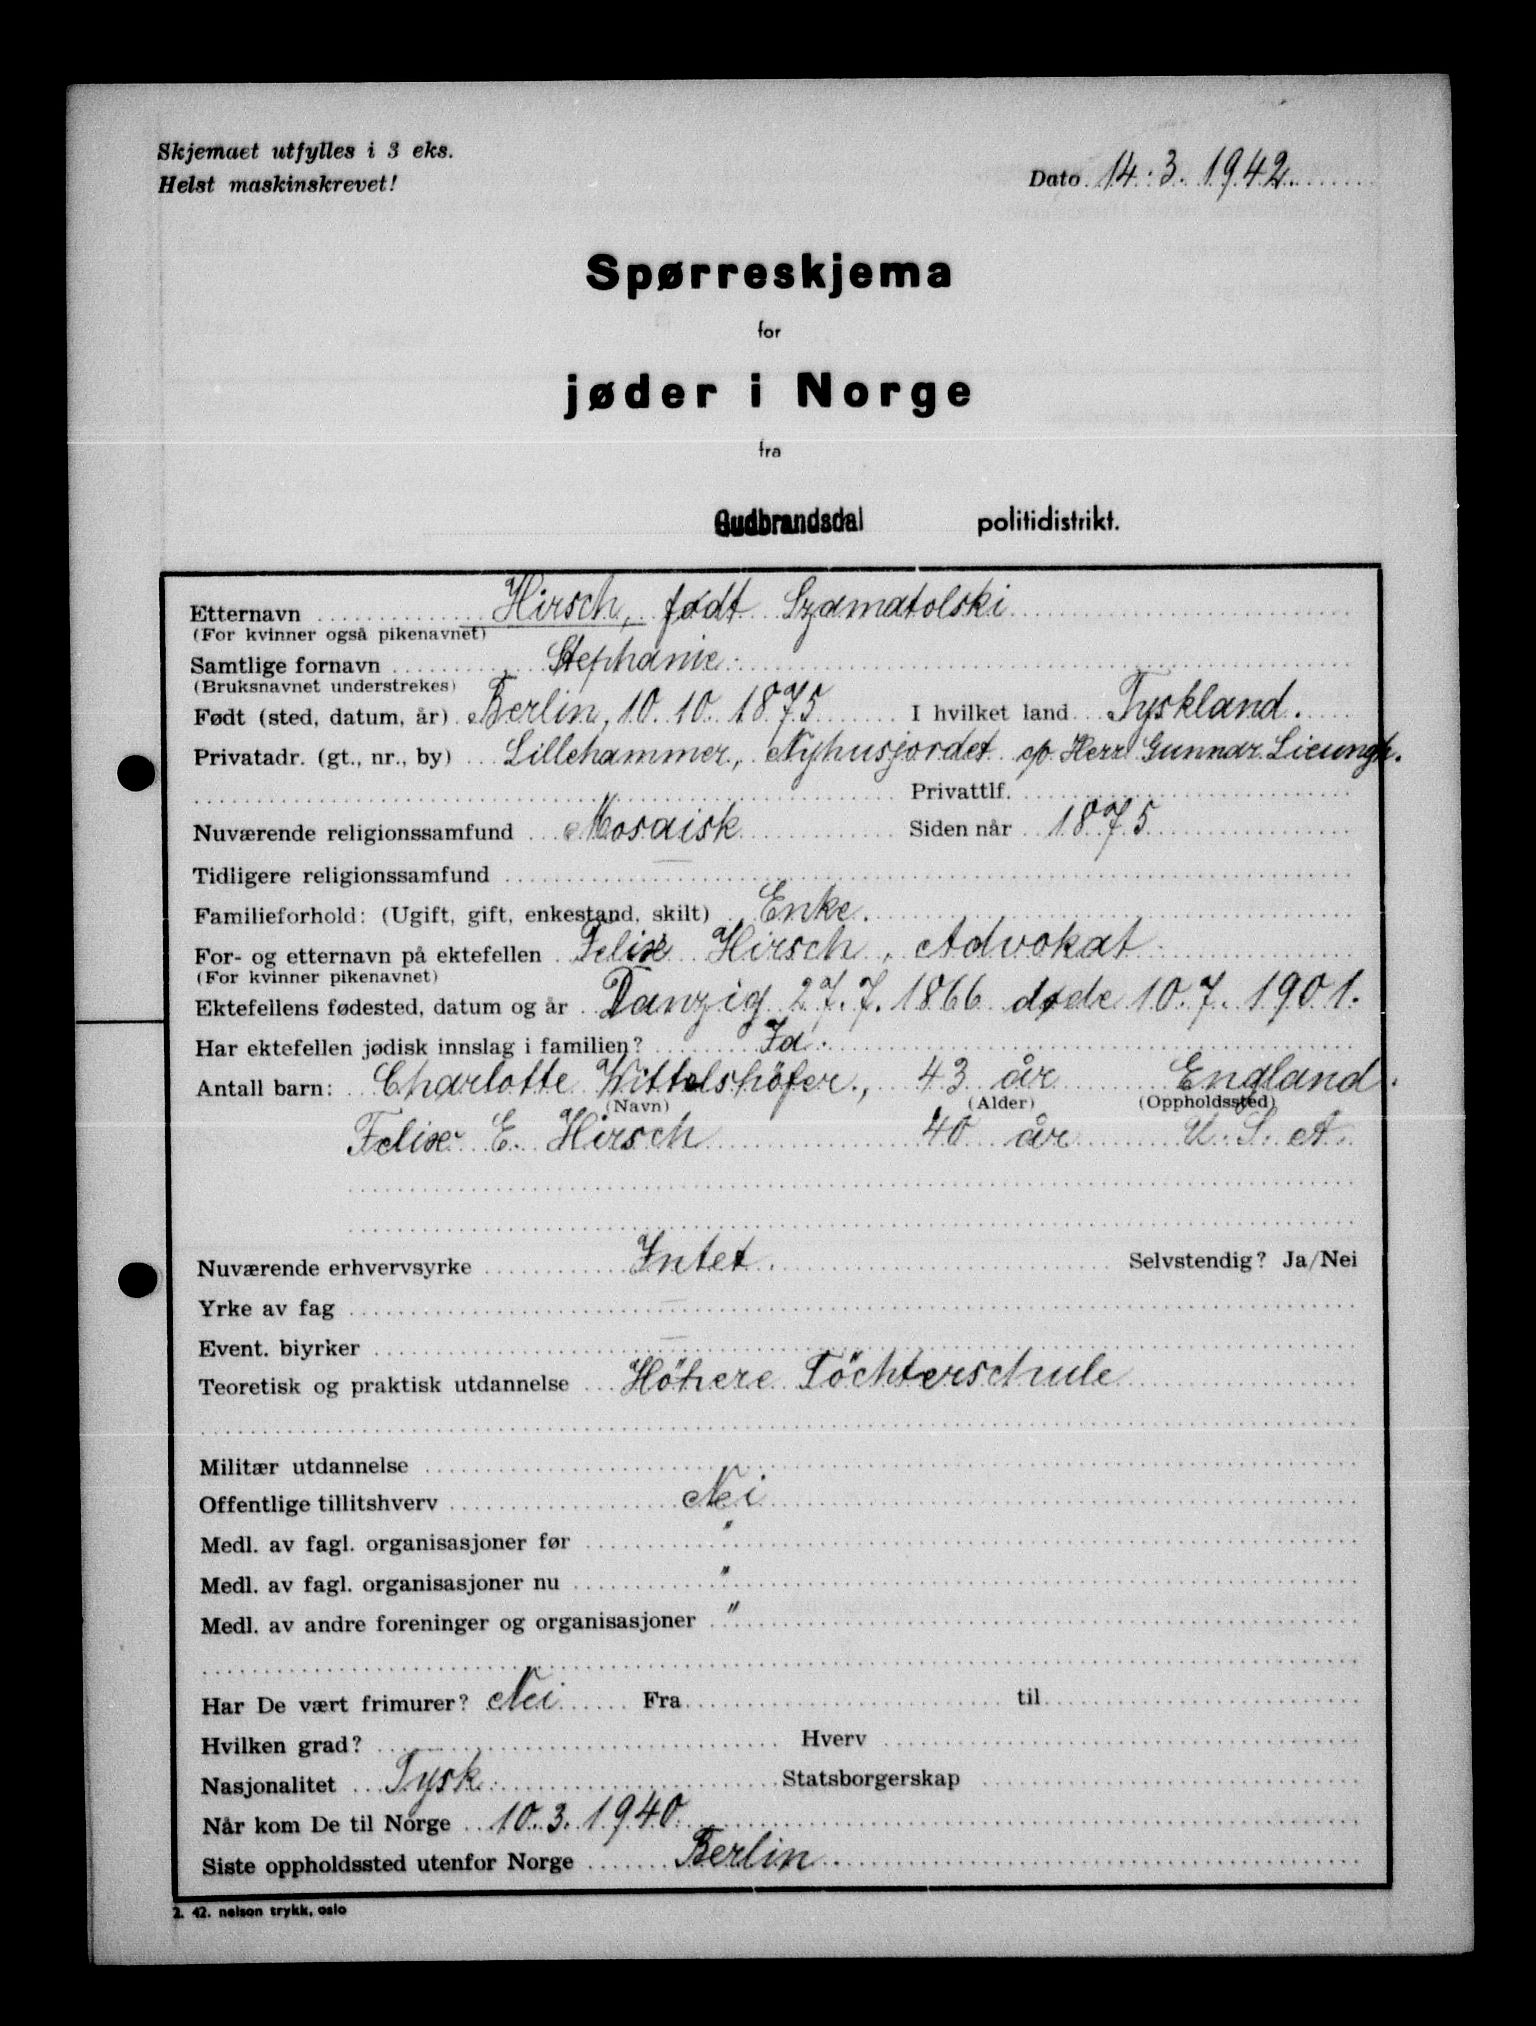 Skjemaet utfylles i 3 eks.
Helst maskinskrevet!
Dato 14.3.1942.
Spørreskjema
for
jøder i Norge
fra
Gudbrandsdal politidistrikt.
Etternavn Hirsch, født Szamatolski
(For kvinner også pikenavnet)
Samtlige fornavn Stephanie
(Bruksnavnet understrekes)
Født (sted, datum, år) Berlin, 10.10.1875 I hvilket land Tyskland.
Privatadr. (gt., nr., by) Lillehammer, Nyhusjordet c/o Herr Gunnar Lieungh.
Privattlf.
Nuværende religionssamfund Mosaisk Siden når 1875
Tidligere religionssamfund —
Familieforhold: (Ugift, gift, enkestand, skilt) Enke.
For- og etternavn på ektefellen Felix Hirsch, Advokat.
(For kvinner pikenavnet)
Ektefellens fødested, datum og år Danzig 27.7.1866 døde 10.7.1901.
Har ektefellen jødisk innslag i familien? Ja.
Antall barn: Charlotte Wittelshöfer, 43 år England.
(Navn) (Alder) (Oppholdssted)
Felix E. Hirsch 40 år U.S.A.
Nuværende erhvervsyrke Intet. Selvstendig? Ja/Nei
Yrke av fag —
Event. biyrker —
Teoretisk og praktisk utdannelse Höhere Töchterschule
Militær utdannelse
Offentlige tillitshverv Nei
Medl. av fagl. organisasjoner før "
Medl. av fagl. organisasjoner nu "
Medl. av andre foreninger og organisasjoner "
Har De vært frimurer? Nei Fra til
Hvilken grad? Hverv
Nasjonalitet Tysk. Statsborgerskap
Når kom De til Norge 10.3.1940
Siste oppholdssted utenfor Norge Berlin.
2. 42. nelson trykk, oslo